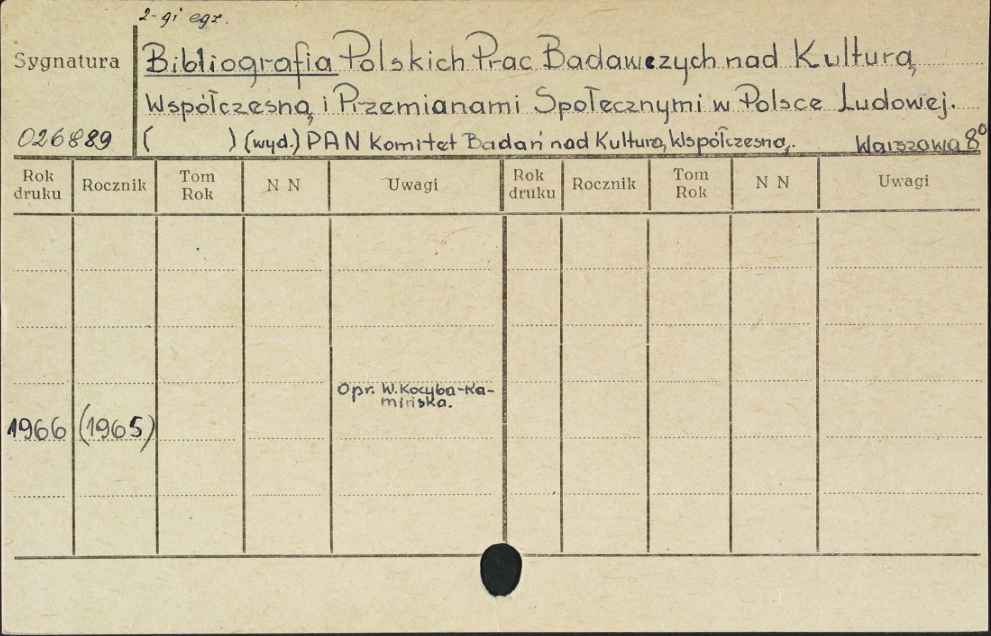 2-gi egz.
Sygnatura
Bibliografia Polskich Prac Badawczych nad Kulturą
Współczesną i Przemianami Społecznymi w Polsce Ludowej.
026889
( ) (wyd.) PAN Komitet Badań nad Kulturą Współczesną. Warszawa 8°
Rok druku Rocznik Tom Rok N N Uwagi Rok druku Rocznik Tom Rok N N Uwagi
Opr. W. Kocyba-Ka-
mińska.
1966 (1965)